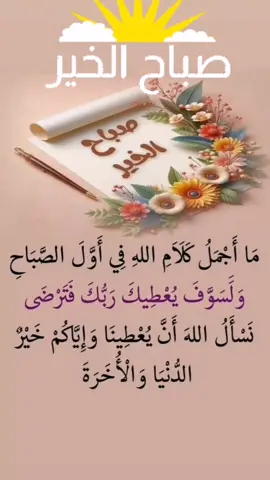 صباح الخير
صباح
الخير
مَا أَجْمَلُ كَلَامِ اللهِ فِي أَوَّلَ الصَّبَاحِ
وَلَسَوَّفَ يُعْطِيكَ رَبُّكَ فَتَرْضَى
نَسْأَلُ اللهَ أَنَّ يُعْطِينَا وَإِيَّاكُمْ خَيْرٌ
الدُّنْيَا وَالْأُخَرَةَ